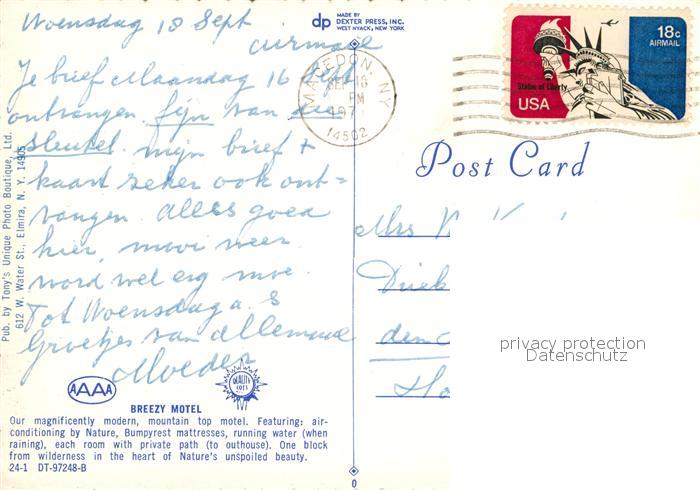 Woensdag 18 Sept
airmail
Je brief Maandag 16 Sept
ontvangen. fijn van die
sleutel. mijn brief +
kaart zeker ook ont=
vangen. Alles goed
hier, mooi weer
word wel erg moe.
Tot Woensdag a.s
Groetjes van Allemaal
Moeder
dp MADE BY
DEXTER PRESS, INC.
WEST NYACK, NEW YORK
MACEDON NY
SEP 18
PM
197
14502
18c
AIRMAIL
Statue of Liberty
USA
Post Card
Mrs
den
privacy protection
Datenschutz
Pub. by Tony's Unique Photo Boutique, Ltd.
612 W. Water St., Elmira, N. Y. 14905
AAAA
QUALITY
BREEZY MOTEL
Our magnificently modern, mountain top motel. Featuring: air-
conditioning by Nature, Bumpyrest mattresses, running water (when
raining), each room with private path (to outhouse). One block
from wilderness in the heart of Nature's unspoiled beauty.
24-1 DT-97248-B
0